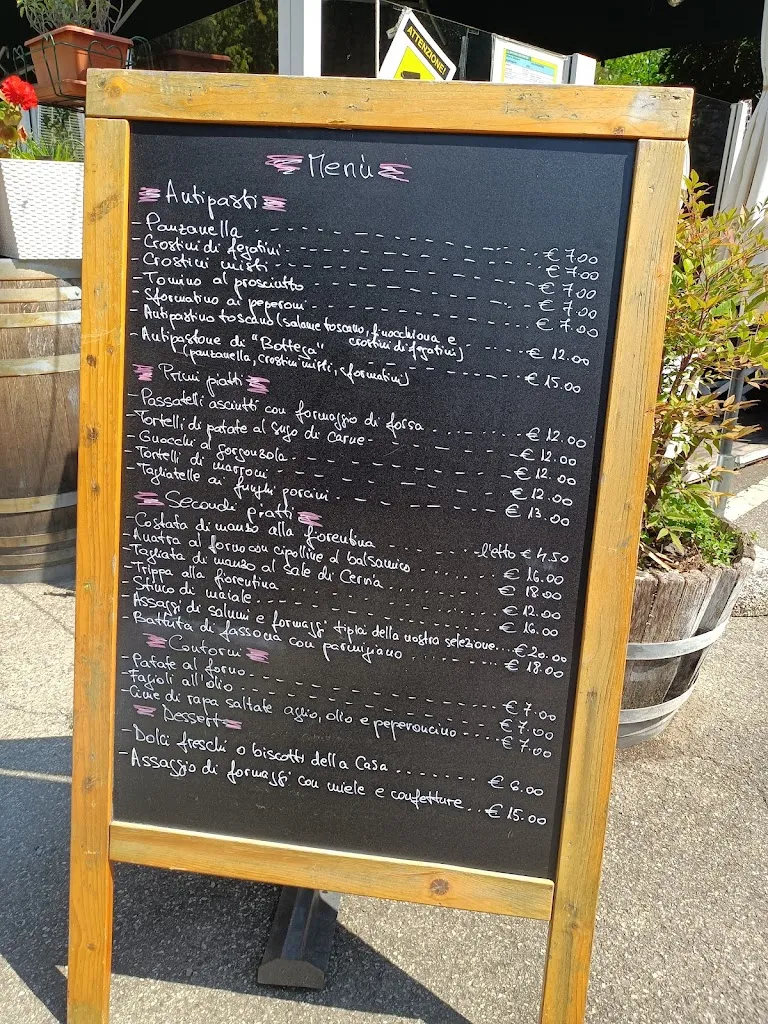 ATTENZIONE!
Menù
Antipasti
- Panzanella € 7.00
- Crostini di fegatini € 7.00
- Crostini misti € 7.00
- Tomino al prosciutto € 7.00
- Sformatino ai peperoni € 7.00
- Antipastino toscano (salame toscano, finocchiona e
crostini di fegatini) € 12.00
- Antipastone di "Bottega"
(panzanella, crostini misti, sformatini) € 15.00
Primi piatti
- Passatelli asciutti con formaggio di fossa € 12.00
- Tortelli di patate al sugo di carne € 12.00
- Gnocchi al gorgonzola € 12.00
- Tortelli di marroni € 12.00
- Tagliatelle ai funghi porcini € 13.00
Secondi piatti
- Costata di manzo alla fiorentina l'etto € 4.50
- Anatra al forno con cipolline al balsamico € 16.00
- Tagliata di manzo al sale di Cervia € 18.00
- Trippa alla fiorentina € 12.00
- Stinco di maiale € 16.00
- Assaggi di salumi e formaggi tipici della nostra selezione... € 20.00
- Battuta di fassona con parmigiano € 18.00
Contorni
- Patate al forno € 7.00
- Fagioli all'olio € 7.00
- Cime di rapa saltate aglio, olio e peperoncino € 7.00
Dessert
- Dolci freschi o biscotti della Casa € 6.00
- Assaggio di formaggi con miele e confetture... € 15.00